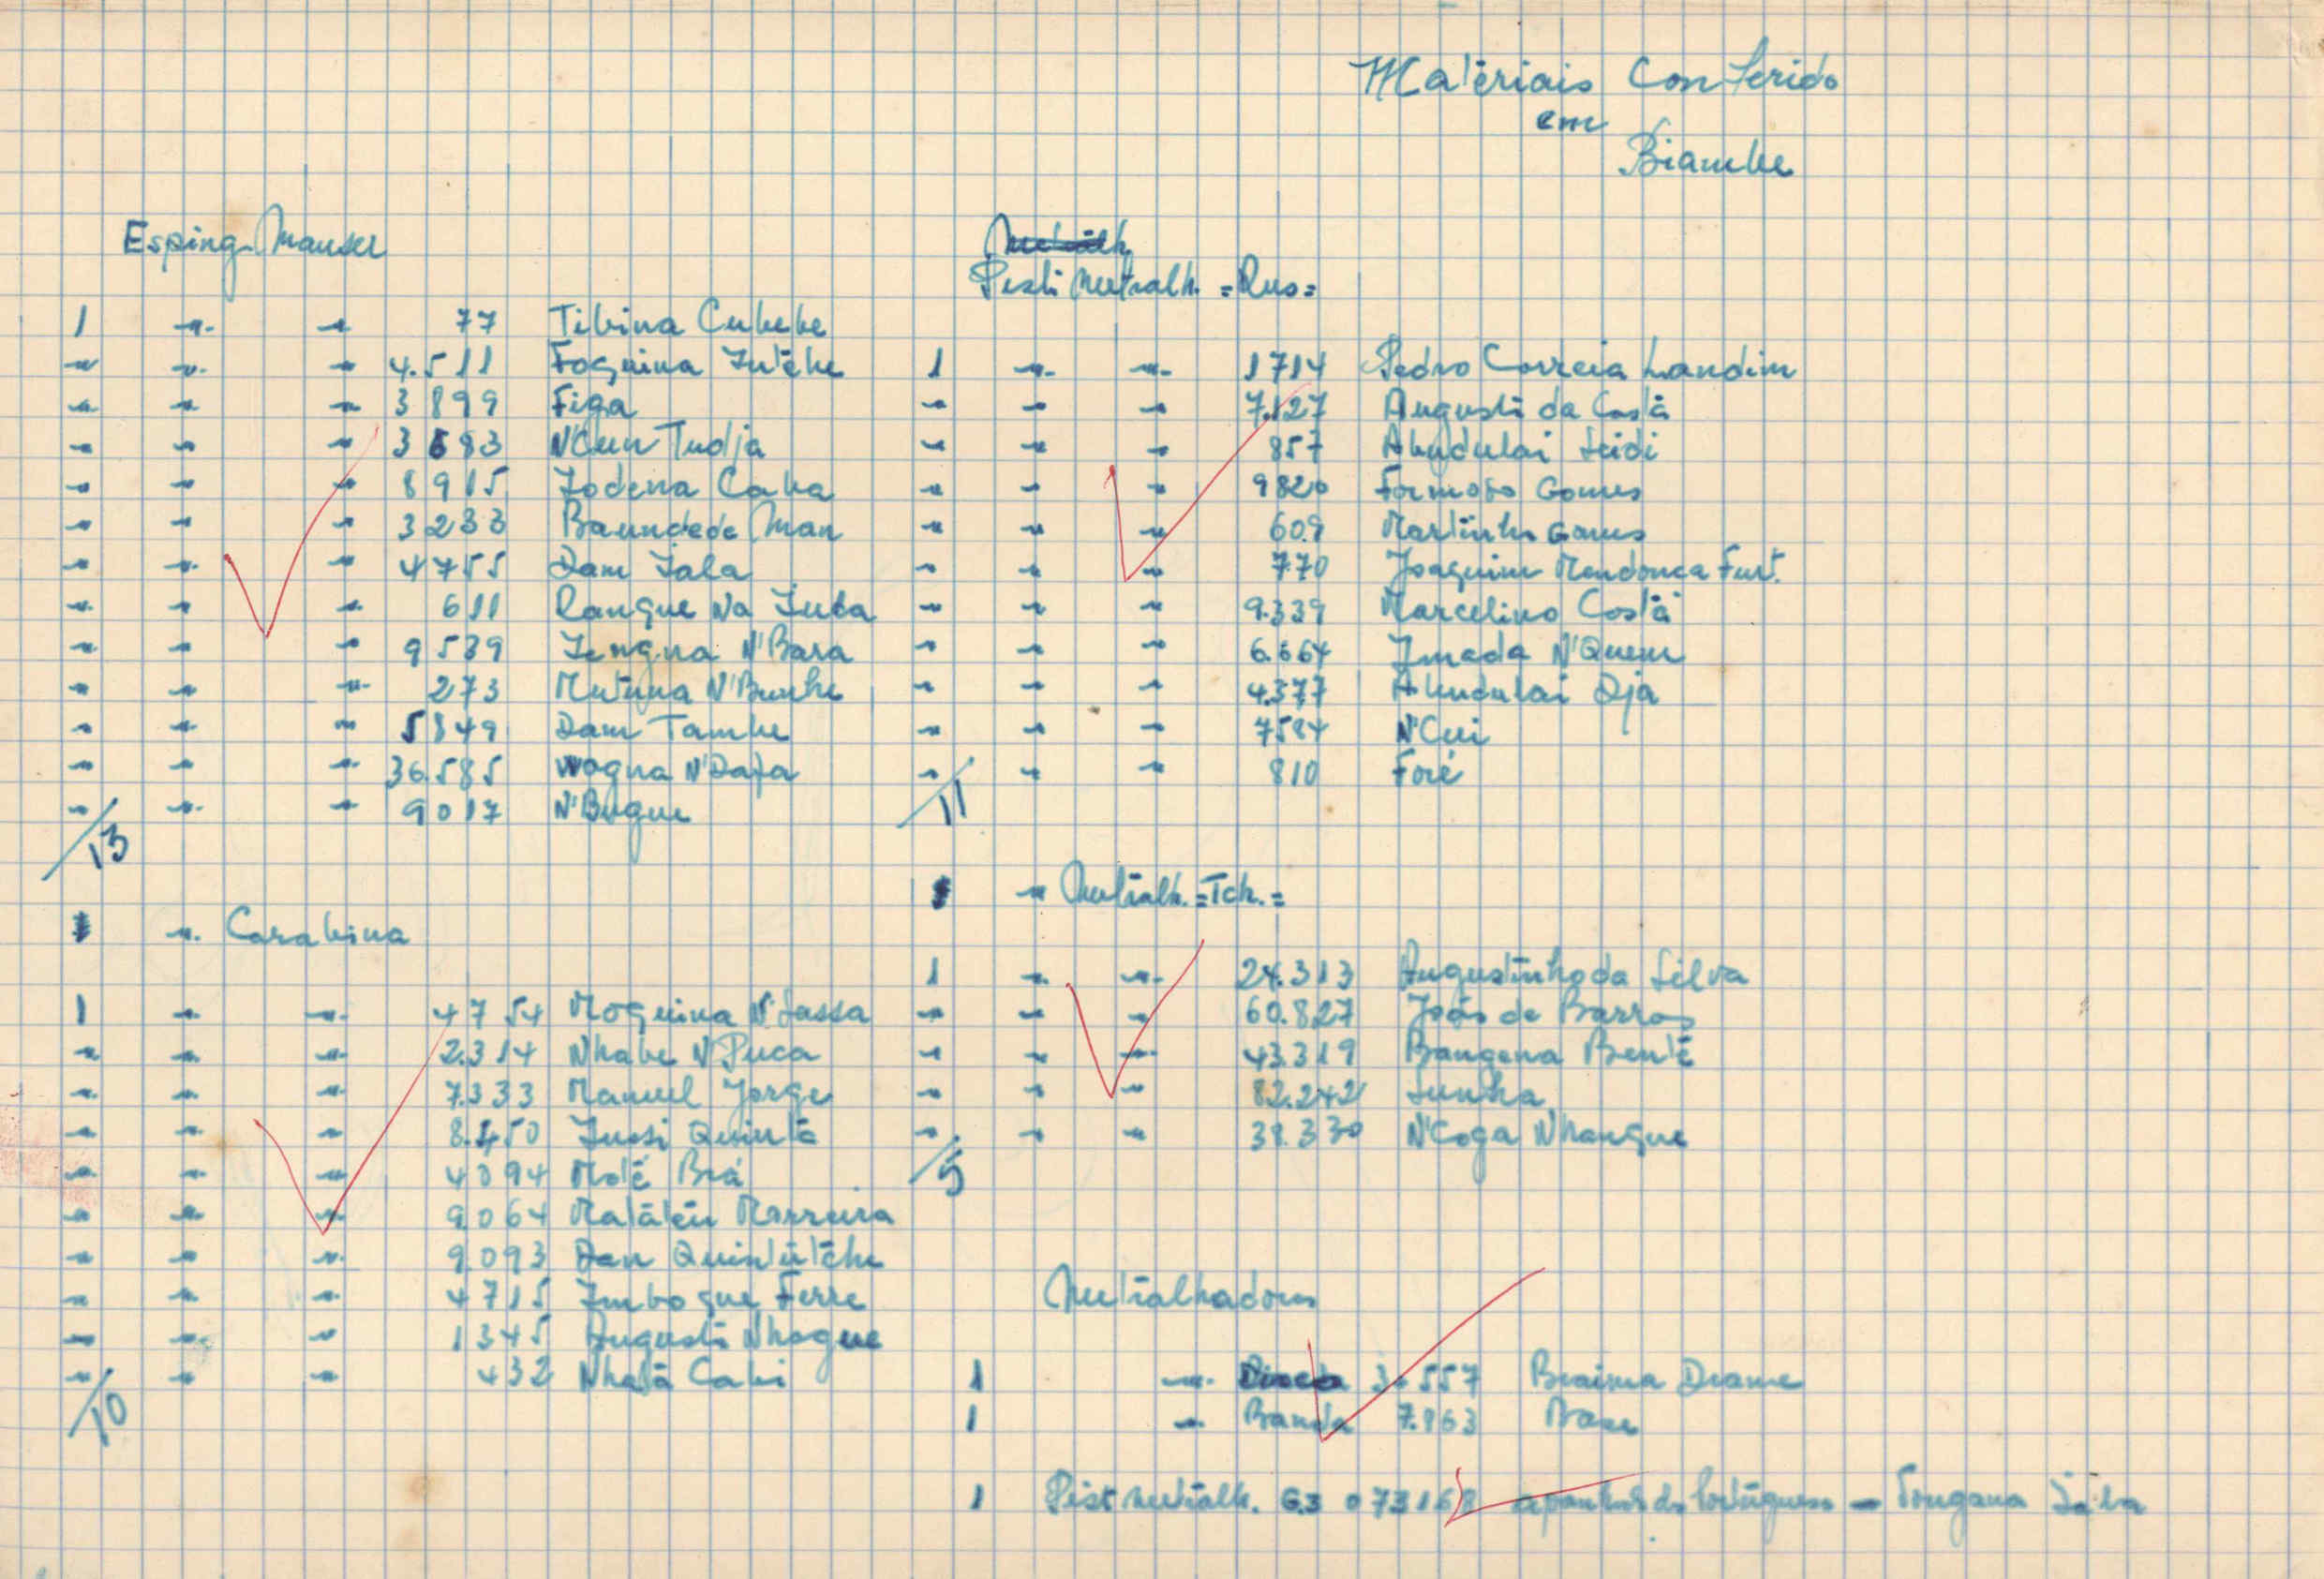 Matériais Conferido
em
Biambe
Esping. Mauser
1 " " 77 Tibina Cubebe
" " " 4.511 Foguina Intche
" " " 3899 Figa
" " " 3683 N'Cun Tudja
" " " 8915 Iodena Caba
" " " 3233 Baundede Man
" " " 4755 Dam Iala
" " " 611 Rangue Na Iuda
" " " 9539 Iengna N'Bara
" " " 273 Mutna N'Bunhe
" " " 5849 Dam Tambe
" " " 36.585 Wogna N'Dafa
" " " 9017 N'Bugue
13
" Carabina
1 " " 4754 Moguina N'Sassa
" " " 2.314 Nhabe N'Puca
" " " 7.333 Manuel Jorge
" " " 8.450 Iussi Quintã
" " " 4094 Moté Brá
" " " 9.064 Marreira
" " " 9.093 Dan
" " " 4715 Imbogue Ferre
" " " 1345 Augusto Nhogue
" " " 432 Nhatã Cabi
10
Pist. Metralh. =Rus=
1 " " 1714 Pedro Correia Landim
" " " 7.127 Augusto da Costa
" " " 857 Abudulai Seidi
" " " 9820 Formoso Gomes
" " " 609 Martinho Gomes
" " " 770 Joaquim Mendonça Furt.
" " " 9.339 Marcelino Costa
" " " 6.664 Imada N'Quem
" " " 4.377 Abudulai Djá
" " " 7584 N'Cui
" " " 810 Foré
11
" Metralh. =Tch.=
1 " " 24.313 Augustinho da Silva
" " " 60.827 João de Barros
" " " 43.319 Bangana Benté
" " " 82.242 Sunha
" " " 38.330 N'Coga Nhangue
5
Metralhadoras
1 " 3.557 Braima Drame
1 " Banda 7.963 Base
1 Pist metralh. G.3 073168 apanhado Portugueses – Tongana